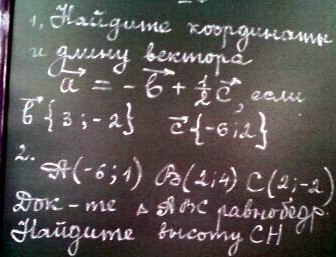 1, Найдите координаты
и длину вектора
a⃗ = -b⃗ + 1/2 c⃗, если
b⃗ {3 ; -2} c⃗ {-6 ; 2}
2.
A(-6; 1) B(2; 4) C(2; -2)
Док-те Δ ABC равнобедр
Найдите высоту CH